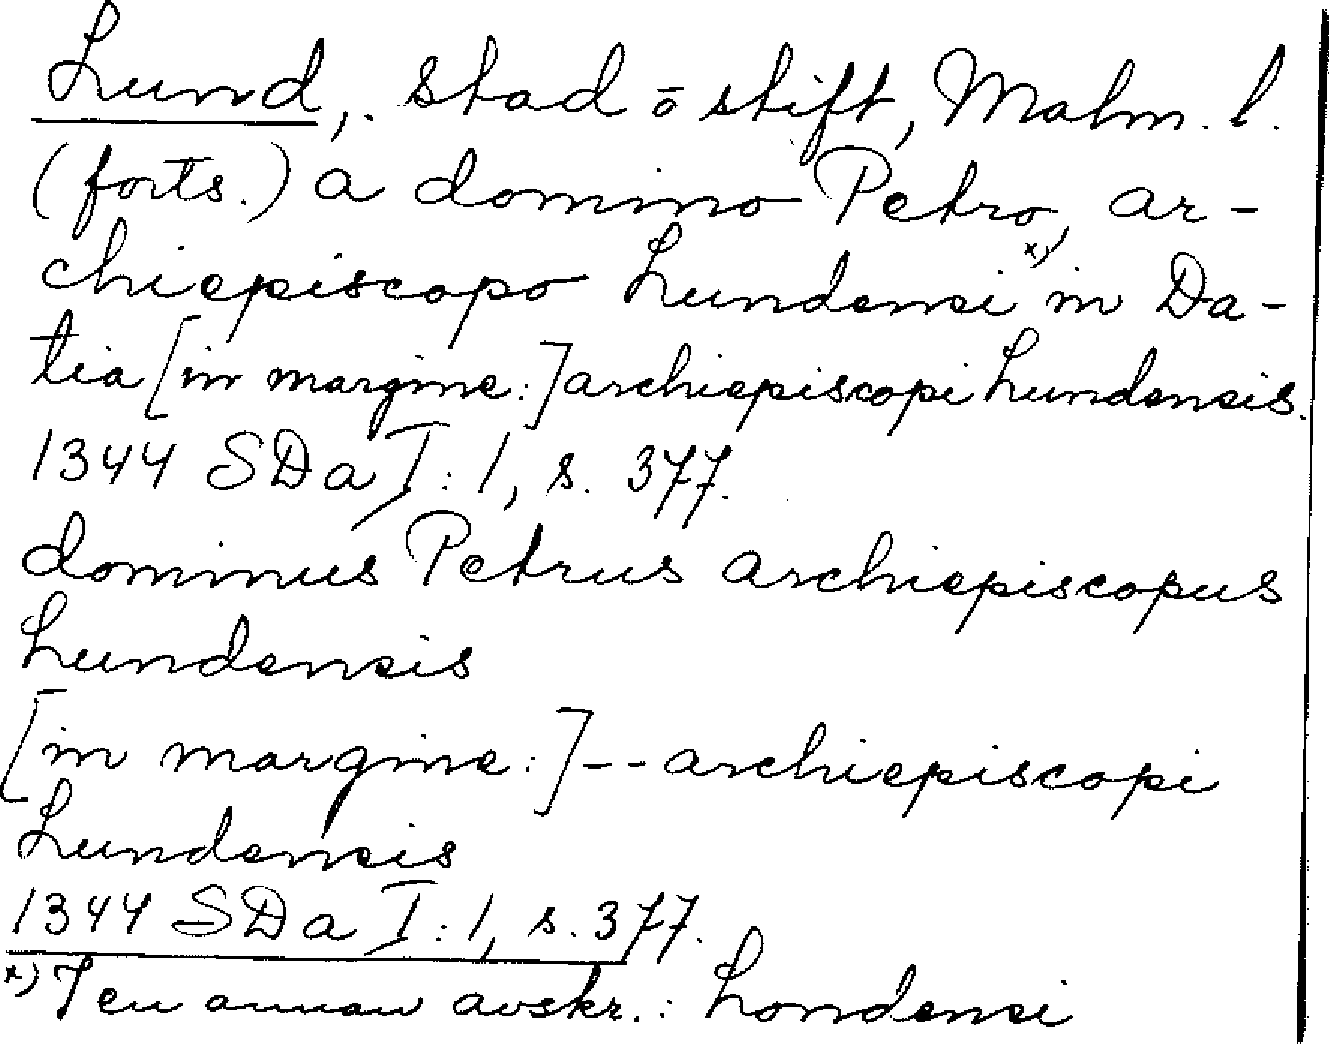 Lund, stad ō stift, Malm. l.
(forts.) a domino Petro, ar-
chiepiscopo Lundensi x) in Da-
tia [in margine:] archiepiscopi Lundensis.
1344 SDa I:1, s. 377.
dominus Petrus archiepiscopus
Lundensis
[in margine:] -- archiepiscopi
Lundensis
1344 SDa I:1, s. 377.
x) I en annan avskr.: Londensi